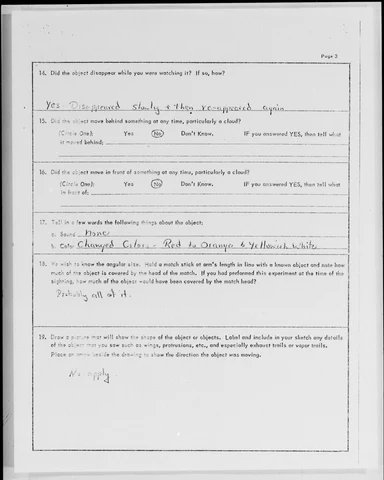 Page 3
14. Did the object disappear while you were watching it? If so, how?
Yes Disappeared slowly & then re-appeared again
15. Did the object move behind something at any time, particularly a cloud?
(Circle One): Yes No Don't Know. IF you answered YES, then tell what
it moved behind:
16. Did the object move in front of something at any time, particularly a cloud?
(Circle One): Yes No Don't Know. IF you answered YES, then tell what
in front of:
17. Tell in a few words the following things about the object:
a. Sound None
b. Color Changed Colors - Red to Orange & Yellowish White
18. We wish to know the angular size. Hold a match stick at arm's length in line with a known object and note how
much of the object is covered by the head of the match. If you had performed this experiment at the time of the
sighting, how much of the object would have been covered by the match head?
Probably all of it.
19. Draw a picture that will show the shape of the object or objects. Label and include in your sketch any details
of the object that you saw such as wings, protrusions, etc., and especially exhaust trails or vapor trails.
Place an arrow beside the drawing to show the direction the object was moving.
No apply